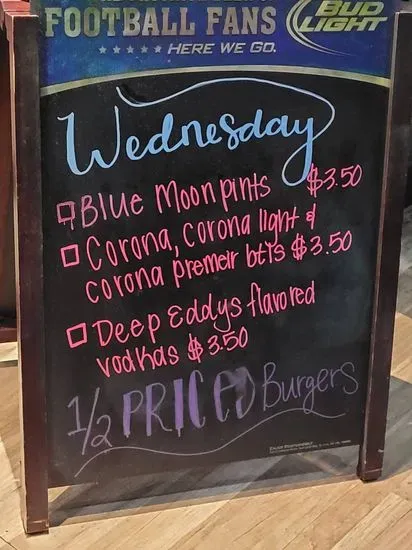 FOOTBALL FANS
HERE WE GO.
BUD
LIGHT
Wednesday
Blue Moon pints $3.50
Corona, corona light &
corona premeir btls $3.50
Deep Eddys flavored
vodkas $3.50
1/2 PRICED Burgers
ENJOY RESPONSIBLY